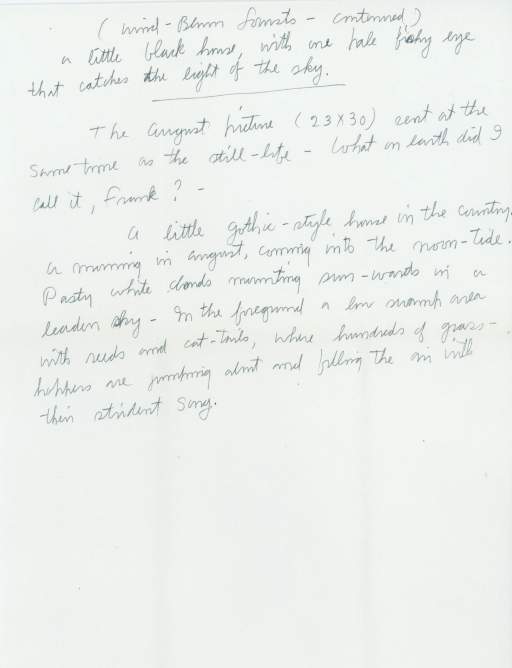 (Wind-Blown Forests - continued)
a little black house, with one pale fishy eye
that catches the light of the sky.
The August picture (23 X 30) sent at the
same time as the still-life - What on earth did I
call it, Frank? -
A little gothic-style house in the country.
A morning in August, coming into the noon-tide.
Pasty white clouds mounting sun-wards in a
leaden sky - In the foreground a low swamp area
with reeds and cat-tails, where hundreds of grass-
hoppers are jumping about and filling the air with
their strident song.